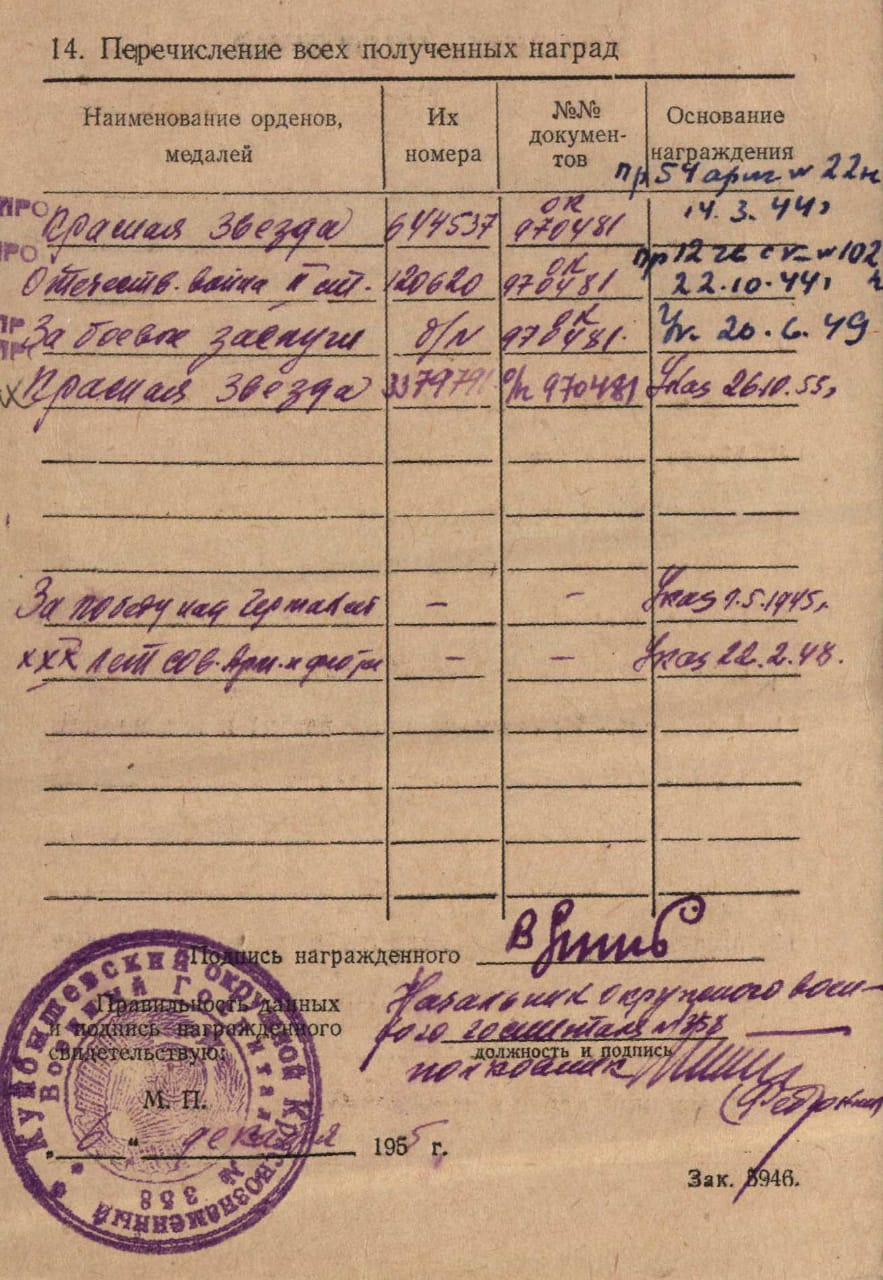 14. Перечисление всех полученных наград
Наименование орденов, медалей
Их номера
№№ документов
Основание награждения
пр 54 арм № 22н
ПРО Красная звезда 644537 ОК 970481 14.3.44г
ПРО Отечеств. война II ст. 120620 ОК 970481 пр 12 гв ск № 102 н 22.10.44г
ПР За боевые заслуги б/N ОК 970481. Ук. 20.6.49
Красная звезда 3379791 о/к 970481 Указ 26.10.55г
За победу над Германией – – Указ 9.5.1945г.
XXX лет сов. Арм. и флота – – Указ 22.2.48.
Подпись награжденного
Правильность данных
и подпись награжденного
свидетельствую:
Начальник окружного воен-
ного госпиталя № 358
должность и подпись
полковник
М. П.
„6“ декабря 1955 г.
Зак. 5946.
Куйбышевский окружной Краснознаменный
Военный Госпиталь № 358